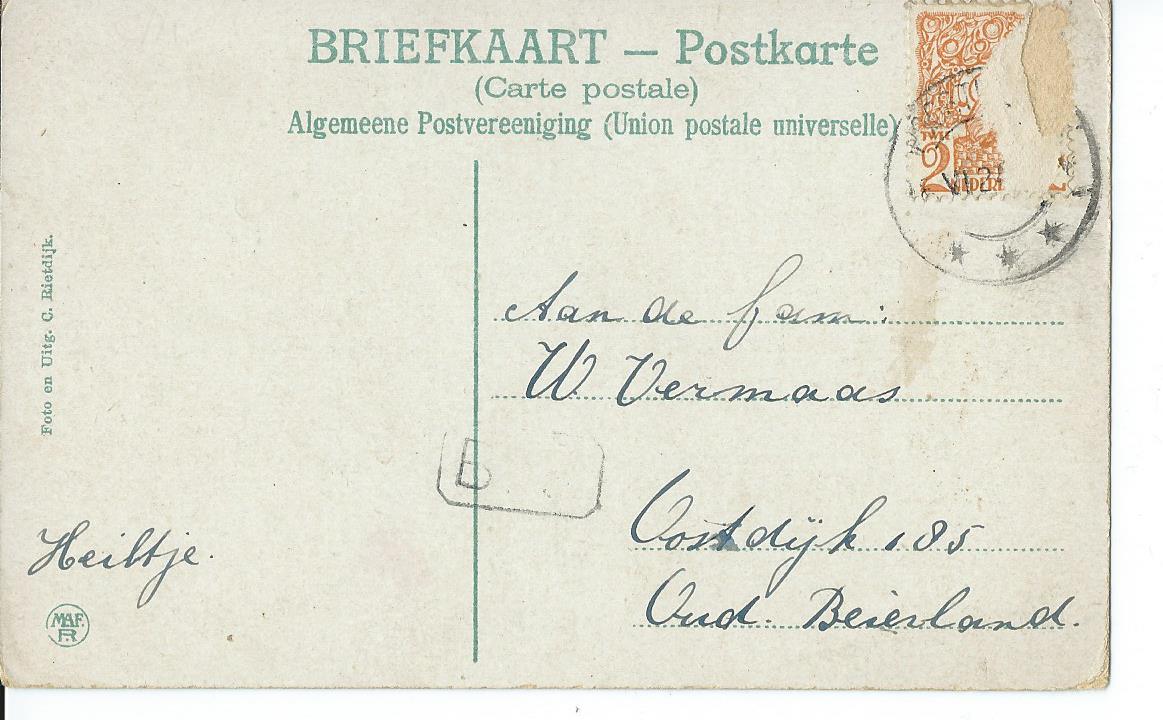 BRIEFKAART — Postkarte
(Carte postale)
Algemeene Postvereeniging (Union postale universelle)
2
VI
Foto en Uitg. C. Rietdijk.
Aan de fam:
W Vermaas
B
Oostdijk 185
Oud. Beierland.
Heiltje.
MAF.
R.